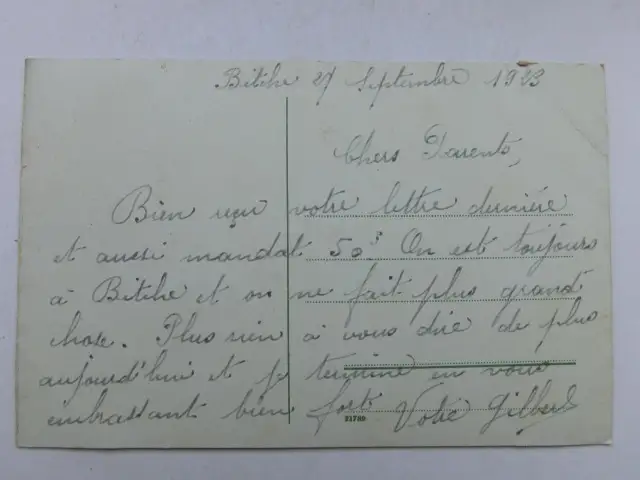 Bitche 27 Septembre 1923
Chers Parents,
Bien reçu votre lettre dernière
et aussi mandat 50f. On est toujours
à Bitche et on ne fait plus grand
chose. Plus rien à vous dire de plus
aujourd'hui et je termine en vous
embrassant bien fort Votre Gilbert
21789